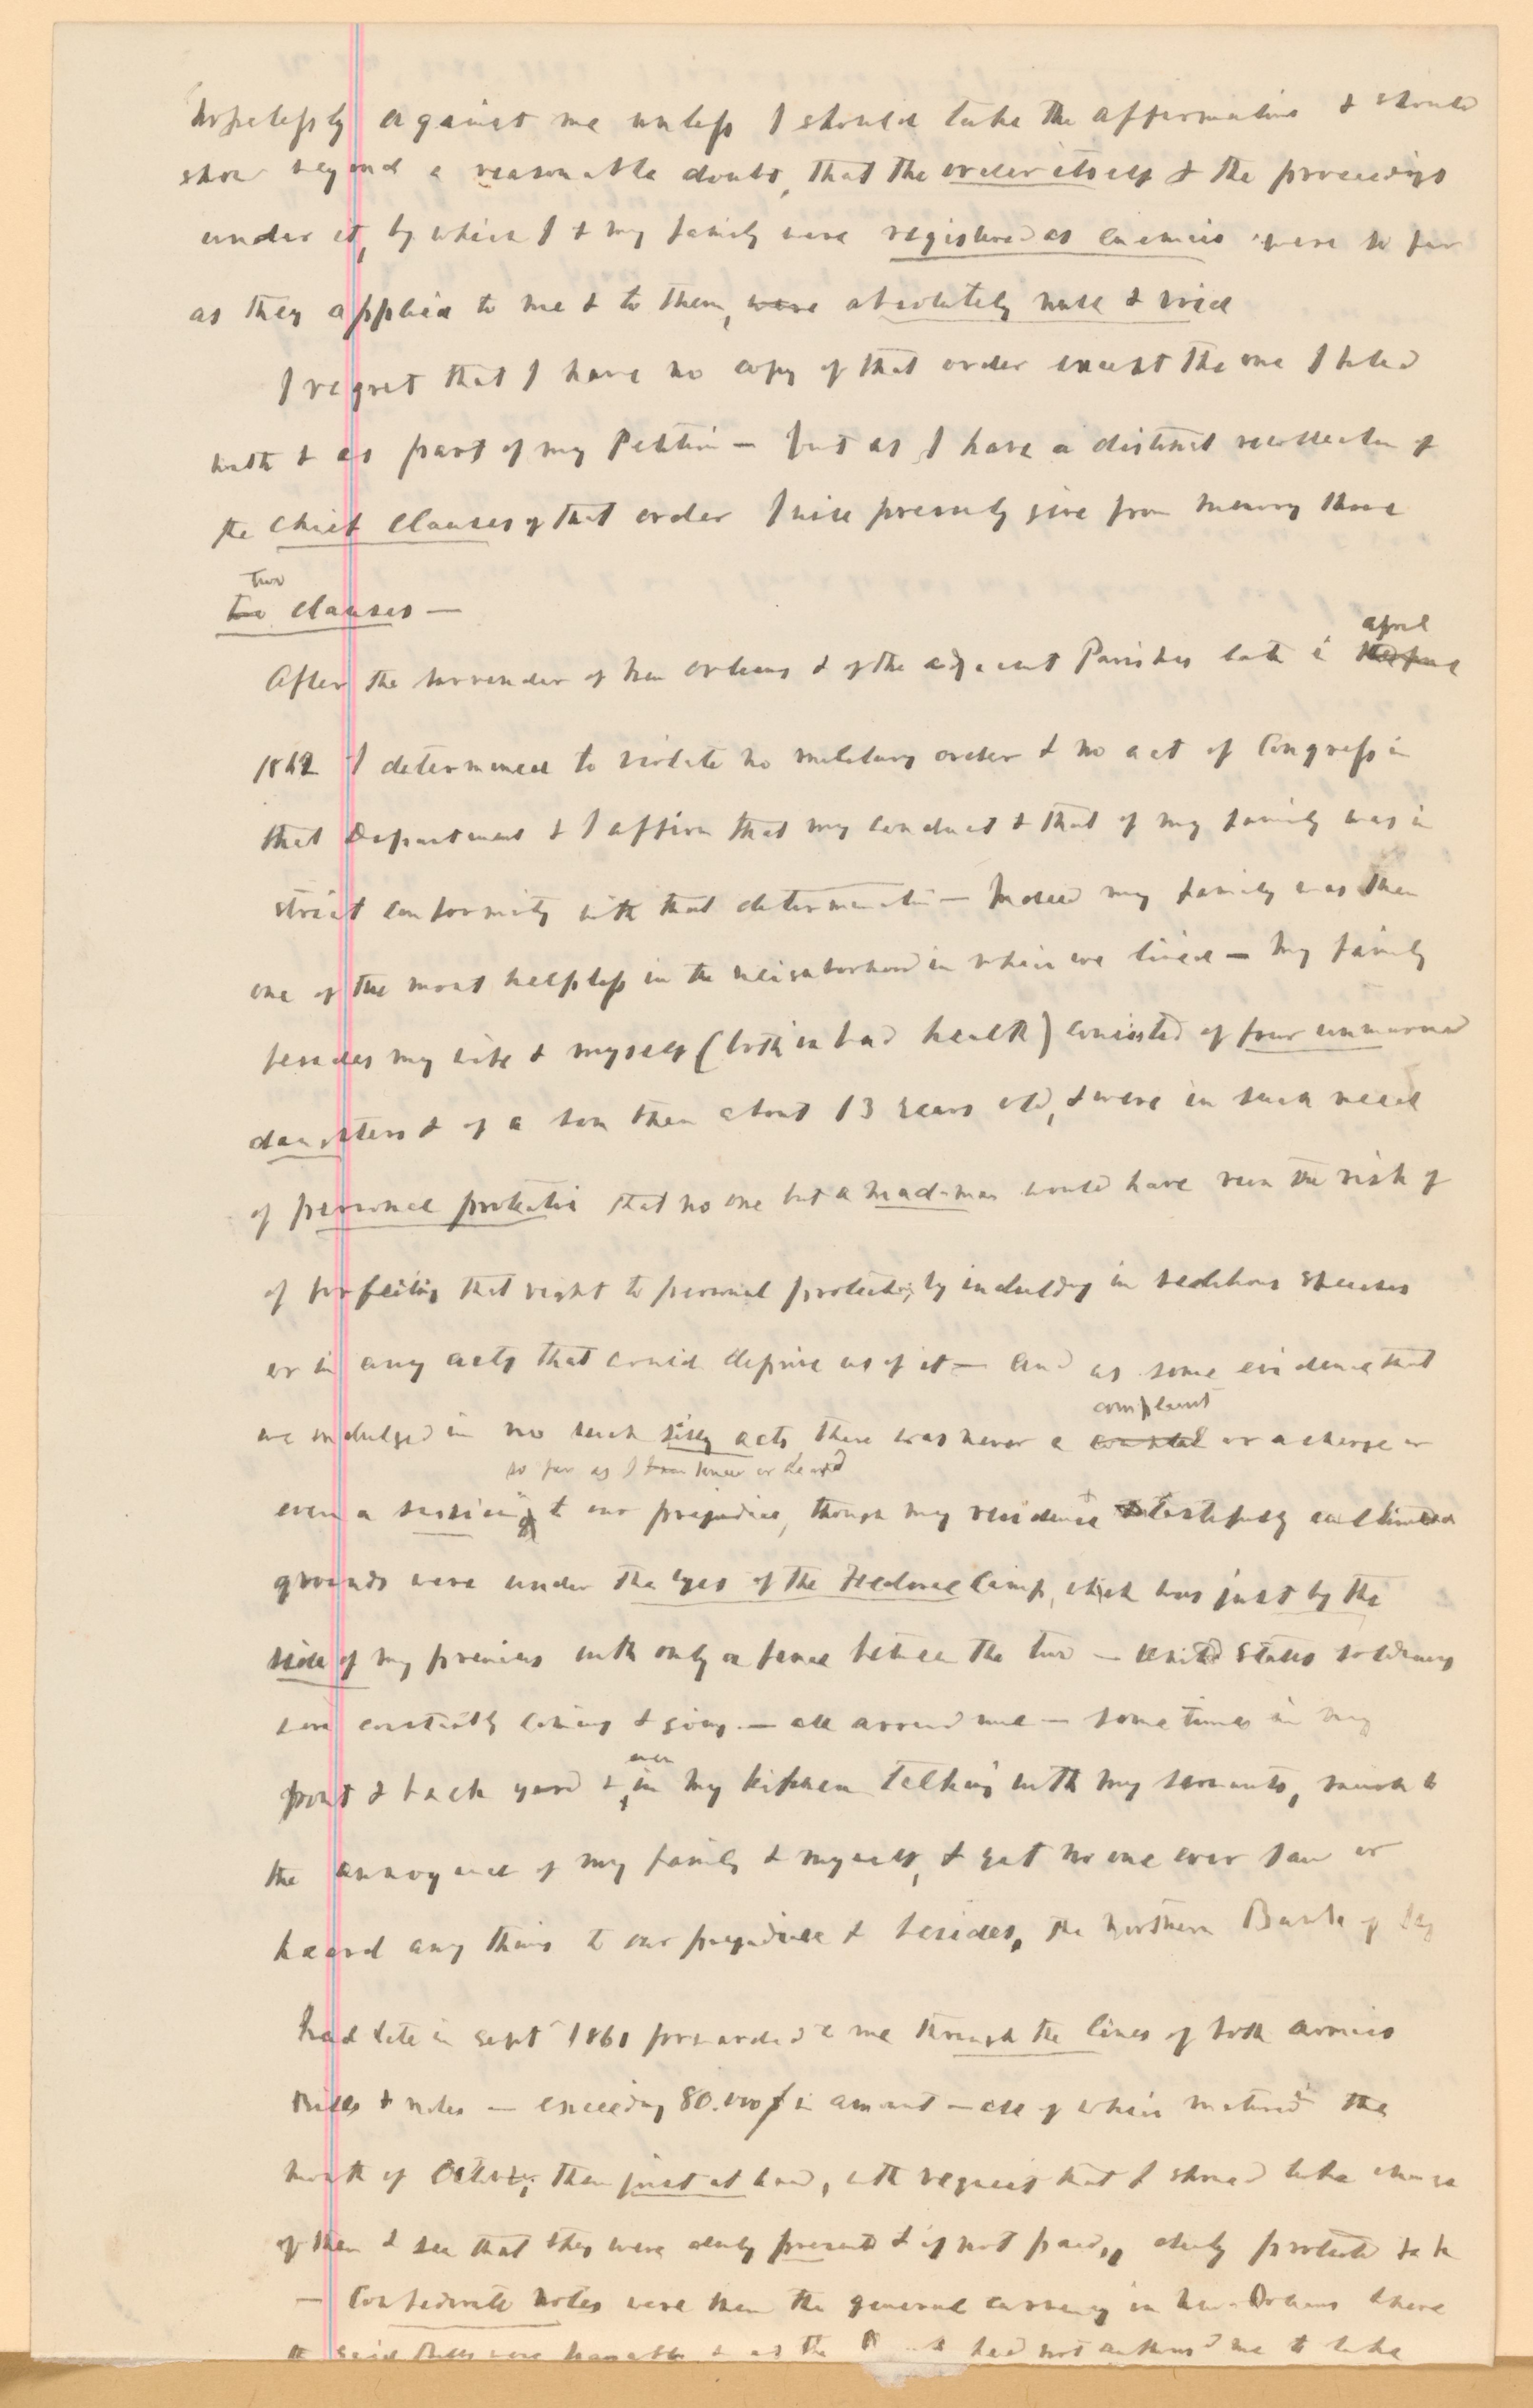 hopelessly against me unless I should take the affirmative & should
show beyond a reasonable doubt, that the order itself & the proceedings
under it, by which I & my family were registered as enemies were so far
as they applied to me & to them, were absolutely null & void
I regret that I have no copy of that order except the one I filed
with & as part of my Petition — but as I have a distinct recollection of
the chief clauses of that order I will presently give from memory those
two
to clauses —
After the surrender of New Orleans & of the adjacent Parishes late in
april
1862 I determined to violate no military order & no act of Congress in
that Department & I affirm that my conduct & that of my family was in
strict conformity with that determination — Indeed my family was then
one of the most helpless in the neighborhood in which we lived — my family
besides my wife & myself (both in bad health) consisted of four unmarried
daughters & of a son then about 13 years old, & were in such need
of personal protection that no one but a mad-man would have run the risk of
of forfeiting that right to personal protection, by indulging in seditious speeches
or in any acts that could deprive us of it — and as some evidence that
complaint
we indulged in no such silly acts there was never a or a charge or
so far as I knew or heard
even a suspicion to our prejudice, though my residence + tastefully cultivated
grounds were under the eyes of the Federal Camp, which was just by the
side of my premises with only a fence between the two — United States soldiers
were constantly coming & going — all around me — sometimes in my
even
front & back yard & in my kitchen talking with my servants, much to
the annoyance of my family & myself, & yet no one ever saw or
heard any thing to our prejudice & besides, the Northern Bank of Ky
had late in Sept 1861 forwarded to me through the lines of both armies
Bills & notes — exceeding 80.000$ in amount — all of which matured the
month of October, then just at hand, with request that I should take charge
of them & see that they were duly presented & if not paid, duly protested
— Confederate notes were then the general currency in New Orleans where
the said Bills were payable & as the Bank had not authorised me to take